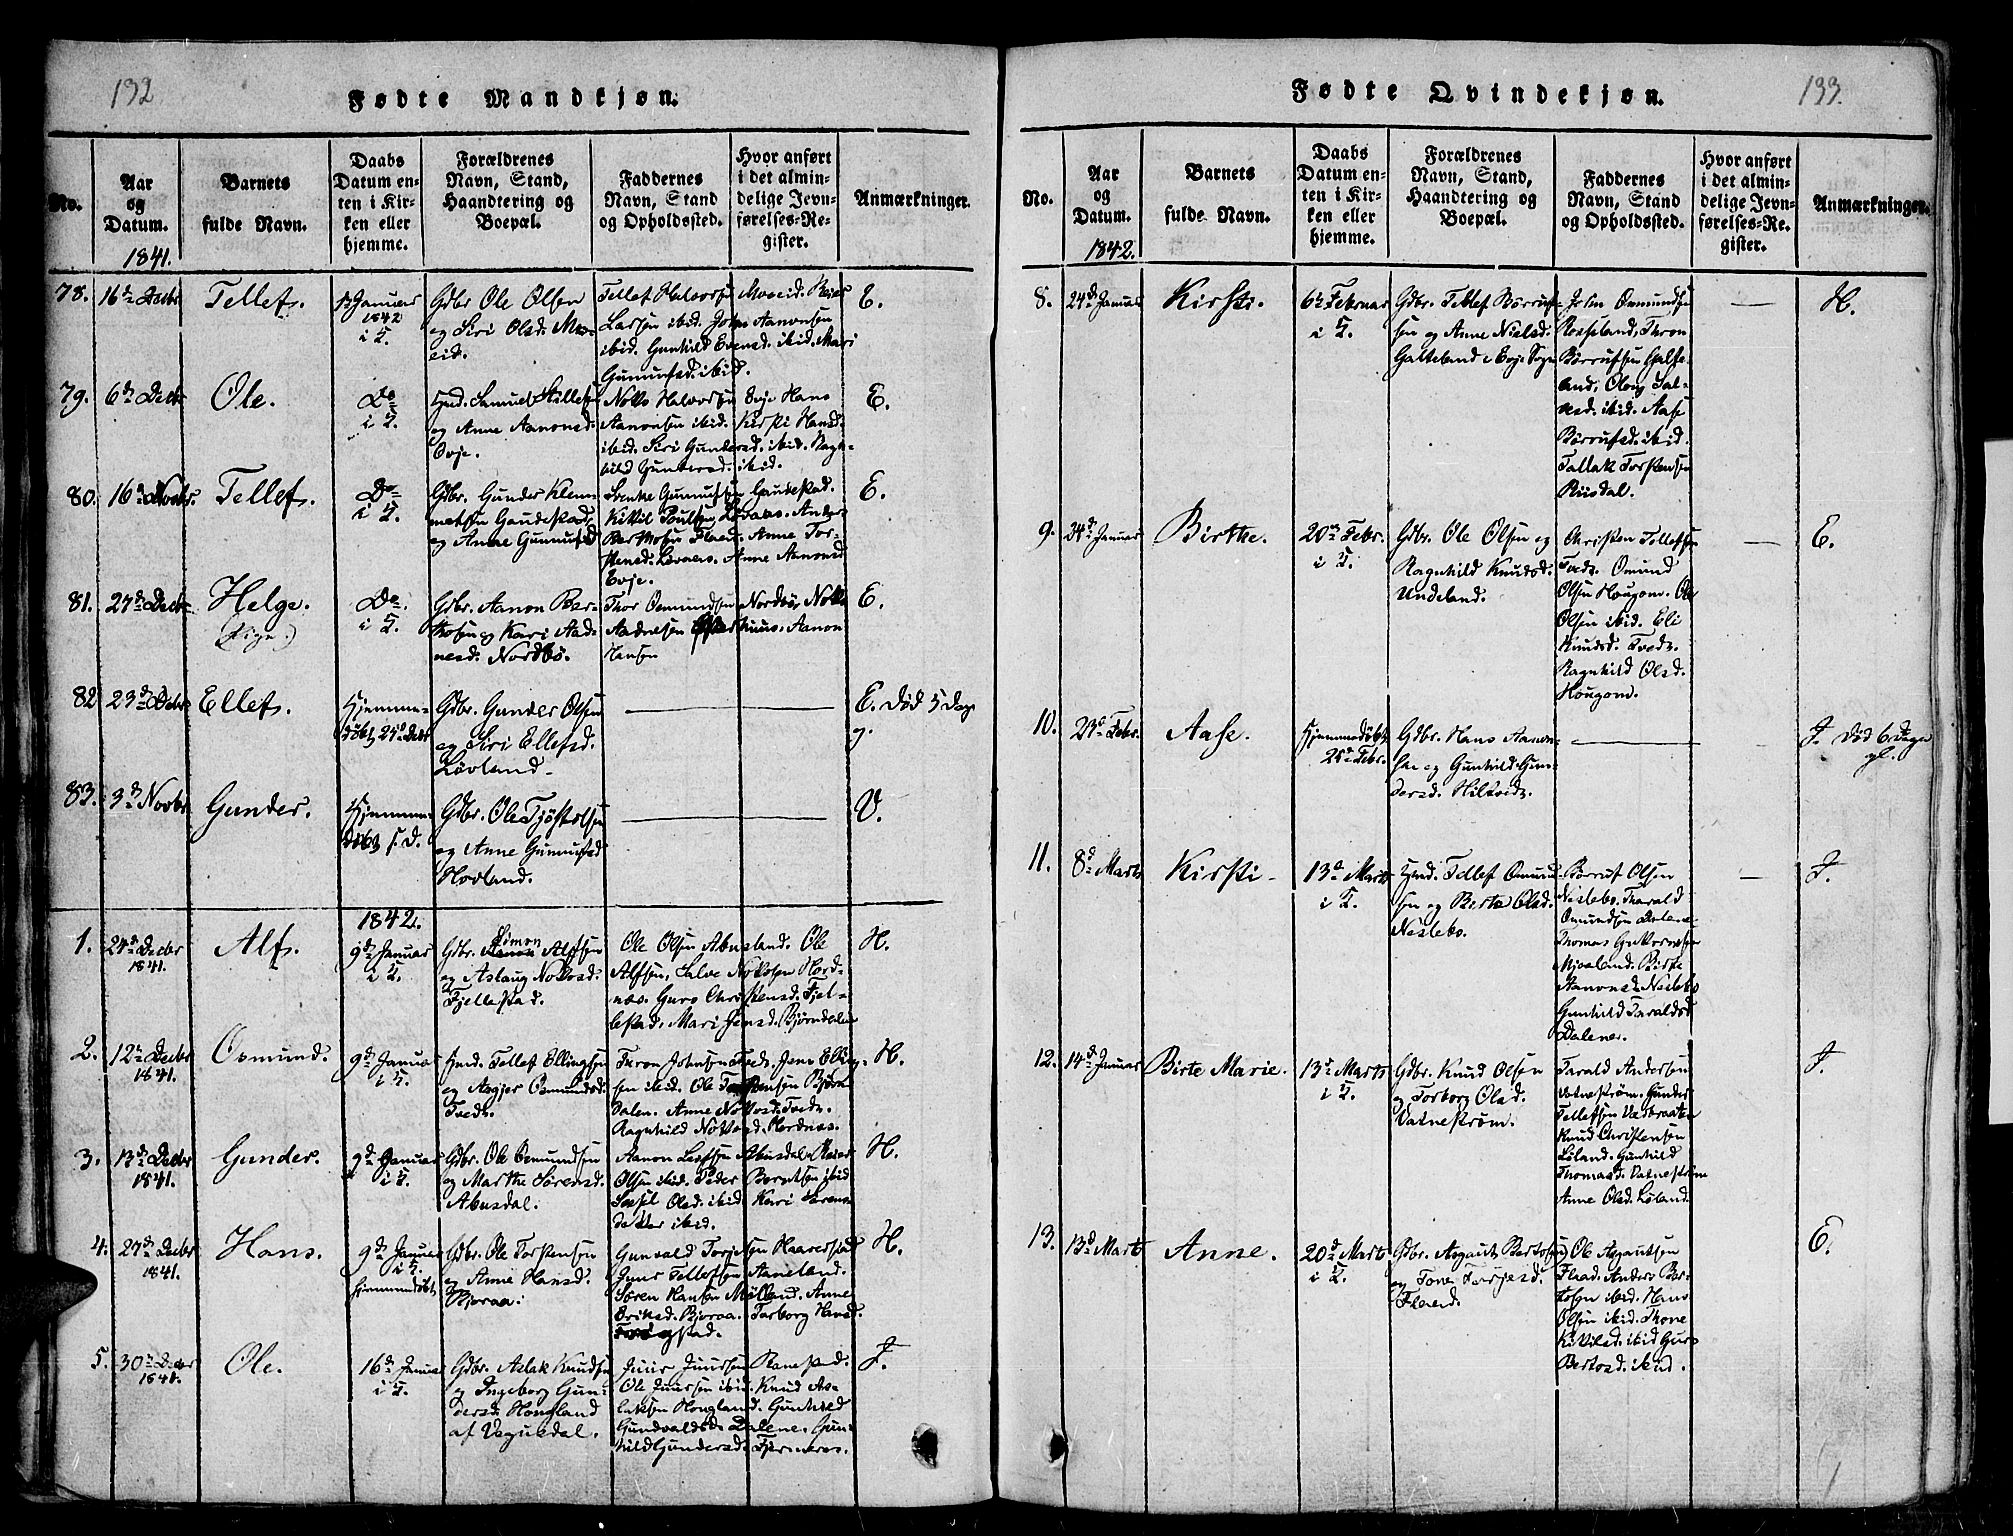 132
Fødte Mandkjøn.
No.
Aar og Datum.
1841.
Barnets fulde Navn.
Daabs Datum enten i Kirken eller hjemme.
Forældrenes Navn, Stand, Haandtering og Boepæl.
Faddernes Navn, Stand og Opholdssted.
Hvor anført i det almindelige Jevnførelses-Register.
Anmærkninger.
78.
16de Decbr
Tellef.
Januar
1842
i K.
Gdbr Ole Olsen
og Siri Olsd. Mo-
eid.
Tellef Halvorsen Moeid.
Larsen ibid. John Aanonsen
ibid. Gunhild Evensd. ibid. Mari
Gunnufsd. ibid.
E.
79.
6te Decbr
Ole.
Do
i K.
Hmd. Samuel
og Anne Aanonsd.
Evje.
Notto Halvorsen Evje Hans
Aanonsen ibid. Kirsti Hansd.
ibid. Siri Gundersd. ibid. Ragn-
hild Gundersd. ibid.
E.
80.
16de Novbr.
Tellef.
Do
i K.
Gdbr. Gunder Klem-
metsen Gaudestad
og Anne Gunnufsd
Svenke Gunnufsen Gaudestad.
Kittil Poulsen
Berthosen Flaad. Anne Tor-
stensd. Anne Aanonsd
Evje.
E.
81.
27de Decbr
Helge.
(Pige.)
Do.
i K.
Gdbr. Aanon Ber-
thosen og Kari Aad-
nesd. Nordbø.
Thor Osmundsen Nordbø, Notto
Aadnesen Aanon
Hansen
E.
82
23de Decbr
Ellef.
Hjemme-
døbt 25de Decbr
Gdbr. Gunder Olsen
og Siri Ellefsd.
Løvland.
E. død 5 Dage
g.
83.
3de Novbr
Gunder.
Hjemme-
døbt s. D.
Gdbr. Ole Tjøstolsen
og Anne Gunnufsd
Hovland.
V.
1842.
1.
24de Decbr
1841.
Alf.
9de Januar
i K.
Simon
Gdbr. Alfsen
og Aslaug Nottosd.
Fjellestad.
Ole Olsen Abusland. Ole
Alfsen, Salve Nottosen Hord-
næs. Guro Christensd. Fjel-
lestad, Mari Jensd. Bjørndalen
H.
2.
12te Decbr
1841.
Osmund.
9de Januar
i K.
Hmd. Tellef Ellingsen
og Asgjer Osmundsd.
Tvedt.
Thron Johnsen Tvedt. Jens Elling-
sen ibid. Ole Torstensen Bjørn
dalen. Anne Nottosd. Tvedt.
Ragnhild Nottosd. Hordnæs.
H.
3.
13de Decbr
1841.
Gunder.
9de Januar
i K.
Gdbr. Ole Osmundsen
og Marthe Sørensd.
Abusdal.
Aanon Leifsen Abusdal
Olsen ibid. Peder Berntsen ibid
Sissil Olsd. ibid Kari Sørens
datter ibid.
H.
4.
27de Decbr
1841.
Hans.
9de Januar
i K.
Hjemmedøbt
Gdbr. Ole Torstensen
og Anne Hansd.
Bjoraa.
Gunvald Torjesen Haaverstad
Juur Tellefsen Aaneland.
Søren Hansen Mølland. Anne
Eriksd. Bjoraa. Torborg Hansd.
H.
5.
30te Decbr
1841.
Ole.
16de Januar
i K.
Gdbr. Aslak Knudsen
og Ingeborg Gun-
dersd. Hougland
af Vegusdal.
Juur Juursen Ranestad.
Ole Juursen ibid. Knud As-
laksen Hougland. Gunhild
Gundvaldsd. Dalene. Gun-
hild Gundersd.
J.
133.
Fødte Qvindekjøn.
No.
Aar og Datum.
1842.
Barnets fulde Navn.
Daabs Datum enten i Kirken eller hjemme.
Forældrenes Navn, Stand, Haandtering og Boepæl.
Faddernes Navn, Stand og Opholdssted.
Hvor anført i det almindelige Jevnførelses-Register.
Anmærkninger.
8.
24de Januar
Kirsti.
6te Februar
i K.
Gdbr. Tellef Børruf-
sen og Anne Nielsd.
Galteland i Evje Sogn
John Osmundsen
Rosseland, Thron
Børrufsen Galte-
land, Oloug Sal-
vesd. ibid. Aase
Børrufsd. ibid.
Tallak Torstensen
Riisdal.
H.
9.
Januar
Birthe.
20de Febr.
i K.
Gdbr. Ole Olsen og
Ragnhild Knudsd.
Undeland.
Christen Tellefsen
Tvedt. Omund
Olsen Hougom. Ole
Olsen ibid. Eli
Knudsd. Tvedt.
Ragnhild Olsd.
Hougom.
E.
10.
23de Febr.
Aase.
Hjemmedøbt
25de Febr.
Gdbr. Hans Aanon-
sen og Gunhild Gun-
dersd. Hiltvedt.
J. død 6 Dage
gl.
11.
8de Marts
Kirsti
13de Marts
i K.
Hmd. Tellef Omund-
sen og Berte Olsd.
Neslebo.
Børruf Olsen
Neslebo. Tharald
Omundsen Dalene
Thomas Guttormsen
Mjoeland. Birte
Aanonsd. Neslebo
Gunhild Taraldsd
Dalene.
J.
12.
14de Januar
Birte Marie.
13de Marts
i K.
Gdbr. Knud Olsen
og Torborg Olsd.
Vatnestrøm.
Tarald Andersen
Vatnestrøm. Gunder
Tellefsen Vedbraaten
Knud Christensen
Løland. Gunhild
Thomasd. Vatnestrøm
Anne Olsd. Løland.
J.
13.
13de Marts
Anne.
20de Marts
i K.
Gdbr. Asgaut Bertosen
og Tone Torjesd.
Flaad.
Ole Asgautsen
Flaad. Anders Ber-
tosen ibid. Hans
Olsen ibid. Thone
Kittilsd. ibid Guro
Bertosd. ibid.
E.